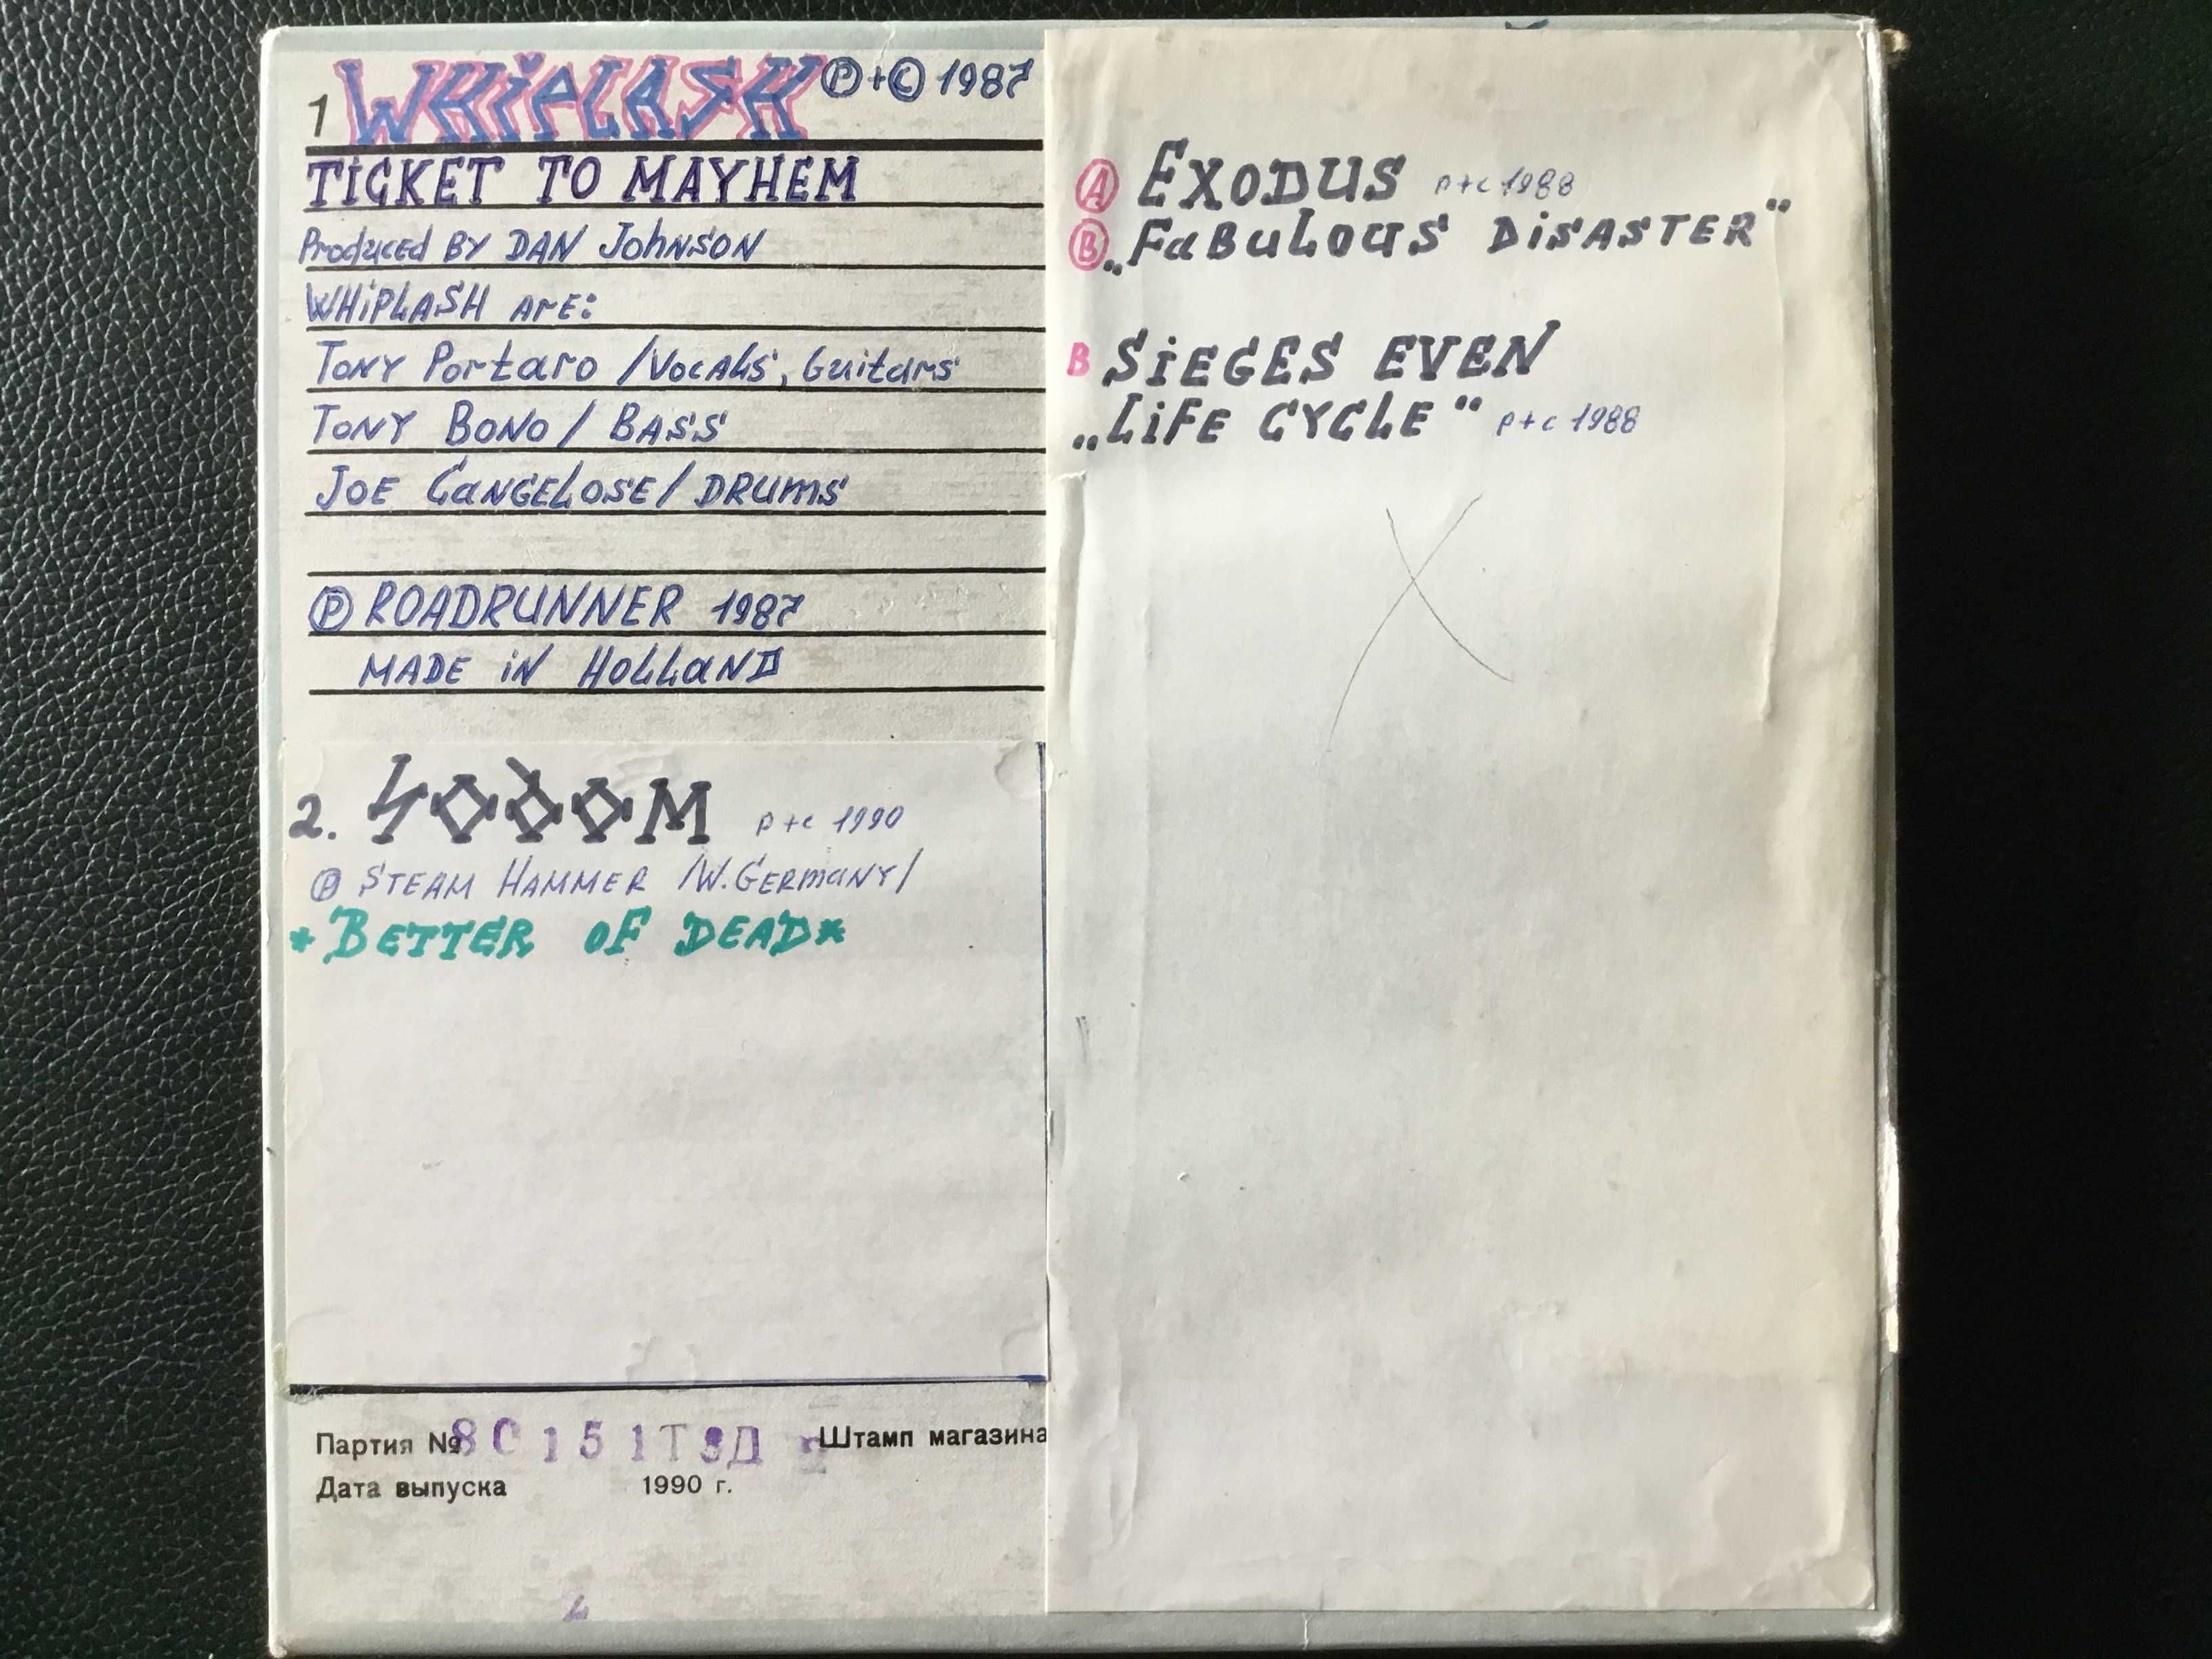 1 WHiPLASH Ⓟ+© 1987
TiCKET TO MAYHEM
Produced BY DAN JohNSON
WHiPLASH ArE:
TONY Portaro /VOCALS, Guitars
TONY BONO / BASS
JOE CANGELOSE / DRUMS
Ⓟ ROADRUNNER 1987
MADE iN HOLLAND
2. SODOM p+c 1990
Ⓟ STEAM HAMMER /W.GERMANY/
*BETTER OF DEAD*
Партия № 80151Т3Д Штамп магазина
Дата выпуска 1990 г.
Ⓐ EXODUS p+c 1988
Ⓑ „FABULOUS DiSASTER“
B SiEGES EVEN
„LiFE CYCLE“ p+c 1988